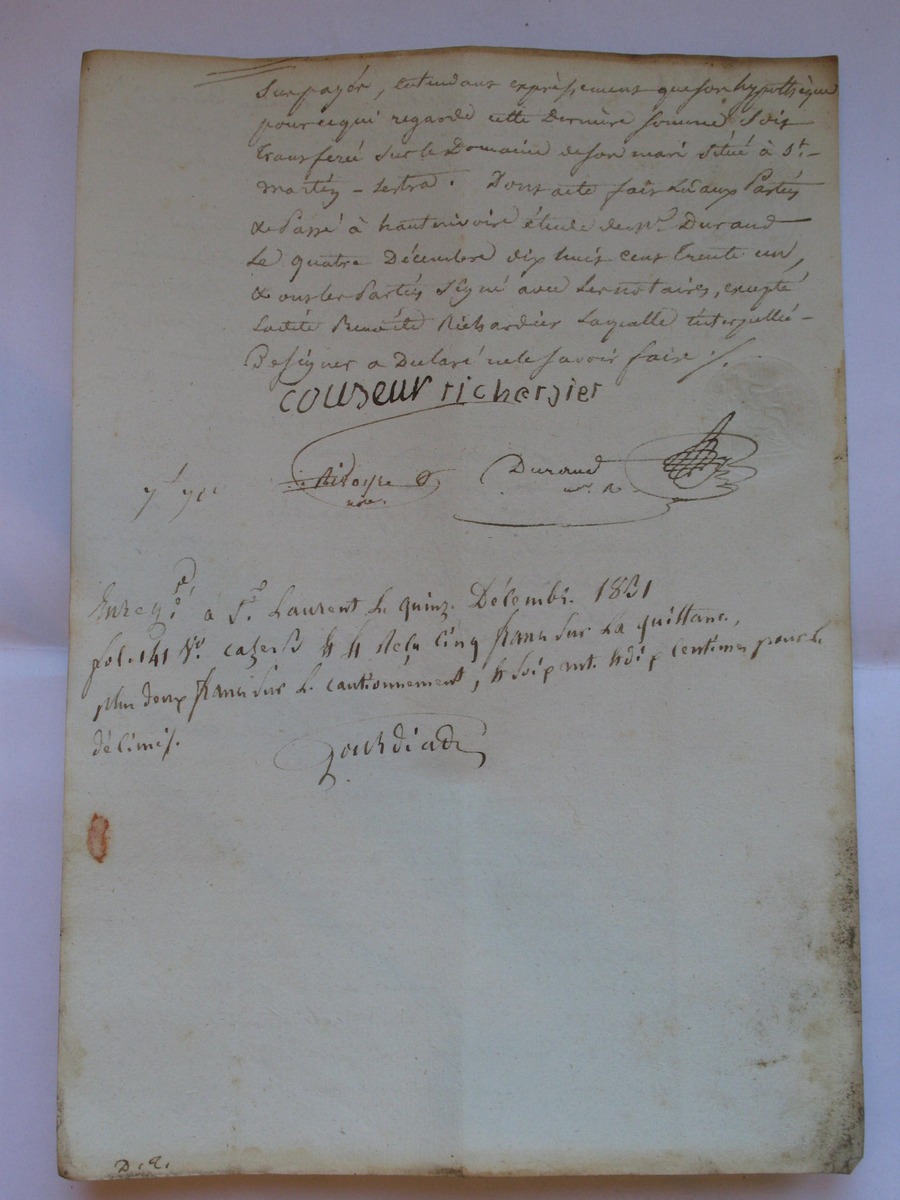 Surpayér, entendant expréssement que son hypothèque
pour ce qui regarde cette Dernière somme Soit
transferée sur le Domaine de son mari Situé à St.-
martin - Lestra. Dont acte fait Lu aux Parties
& Passé à hauterivoire étude de Mr. Durand
Le quatre Décembre dix huit cent trente un,
& ont les Parties Signé avec les notaires, excepté
Ladite Benoite Richardier Laquelle interpellée
De signer a Declaré ne le savoir faire ./.
couzeur richardier
Durand
Enregré. à St. Laurent le quinze Décembre 1831
fol. 141 Vo. caze 3 reçu cinq francs sur la quittance,
plus deux francs sur le cautionnement, & soixante & dix centimes pour le
décime/.
Gourdiat
D. Q.